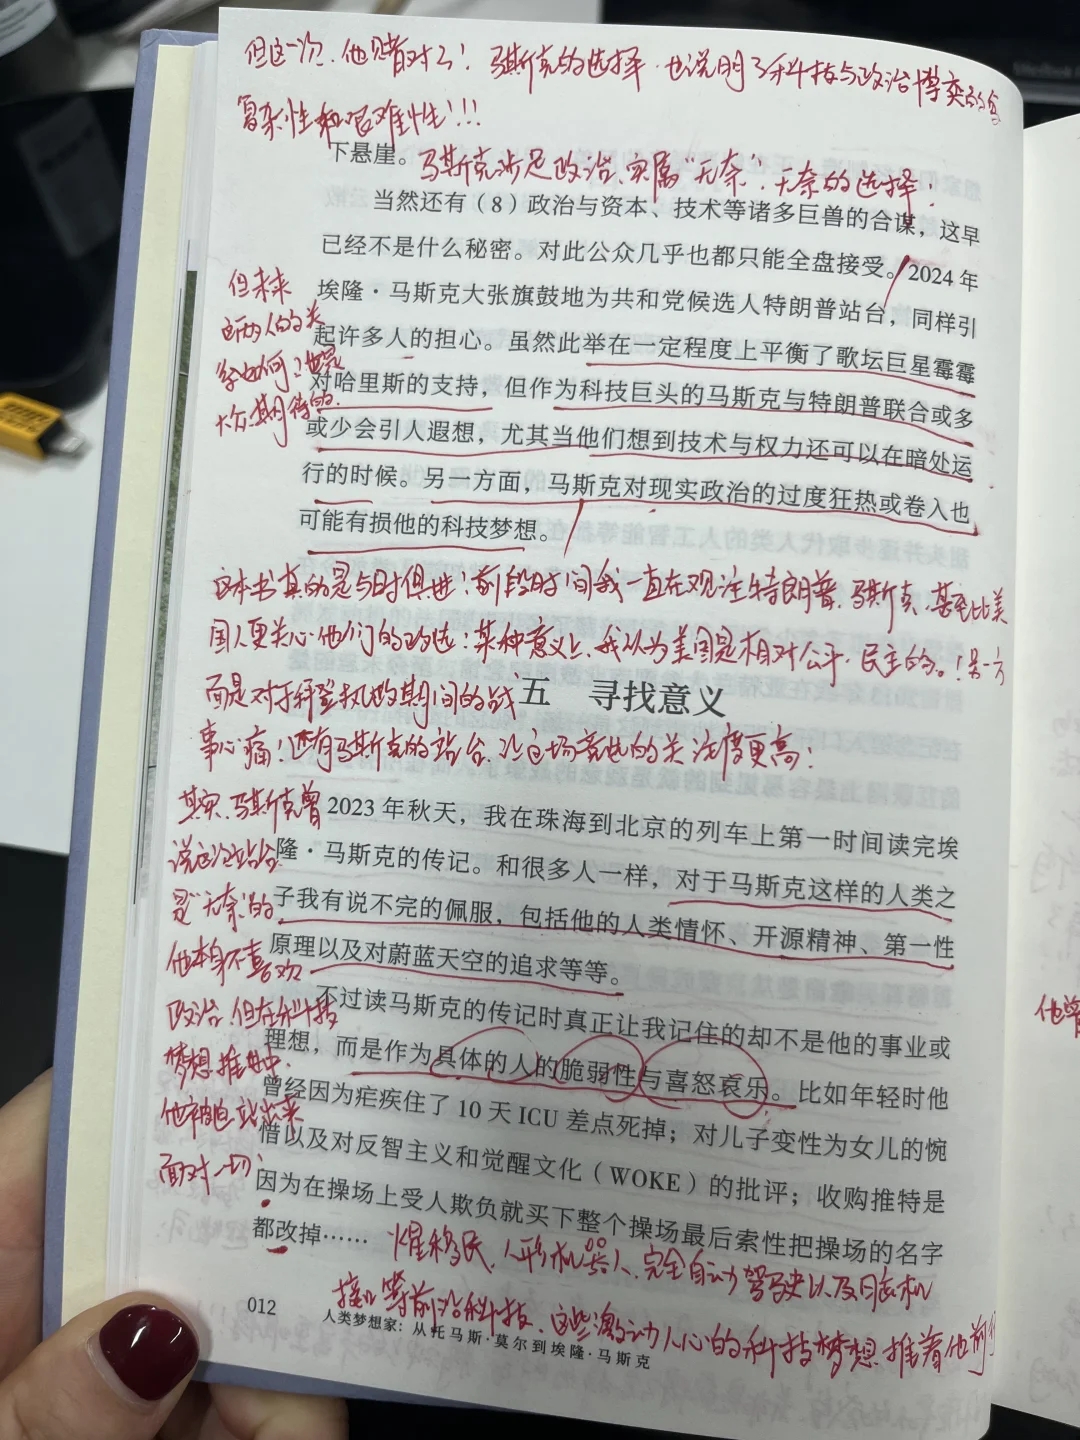 但这一次，他赌对了！马斯克的选择，也说明了科技与政治博弈的
复杂性和艰难性!!!
下悬崖。
马斯克涉足政治，实属“无奈”，无奈的选择！
当然还有（8）政治与资本、技术等诸多巨兽的合谋，这早
已经不是什么秘密。对此公众几乎也都只能全盘接受。2024 年
埃隆·马斯克大张旗鼓地为共和党候选人特朗普站台，同样引
起许多人的担心。虽然此举在一定程度上平衡了歌坛巨星霉霉
对哈里斯的支持，但作为科技巨头的马斯克与特朗普联合或多
或少会引人遐想，尤其当他们想到技术与权力还可以在暗处运
行的时候。另一方面，马斯克对现实政治的过度狂热或卷入也
可能有损他的科技梦想。
但未来
这两人的关
系如何？也是
大众期待的.
这本书真的是与时俱进！前段时间我一直在观注特朗普、马斯克，甚至比美
国人更关心他们的政选！某种意义上，我认为美国是相对公平、民主的。！另一方
面是对于拜登执政期间的战
事心痛！还有马斯克的站台，让这场竞选的关注度更高！
五 寻找意义
2023 年秋天，我在珠海到北京的列车上第一时间读完埃
隆·马斯克的传记。和很多人一样，对于马斯克这样的人类之
子我有说不完的佩服，包括他的人类情怀、开源精神、第一性
原理以及对蔚蓝天空的追求等等。
不过读马斯克的传记时真正让我记住的却不是他的事业或
理想，而是作为具体的人的脆弱性与喜怒哀乐。比如年轻时他
曾经因为疟疾住了 10 天 ICU 差点死掉；对儿子变性为女儿的惋
惜以及对反智主义和觉醒文化（WOKE）的批评；收购推特是
因为在操场上受人欺负就买下整个操场最后索性把操场的名字
都改掉……
其实，马斯克曾
说这次站台
是“无奈”的
他本身不喜欢
政治，但在科技
梦想推进中，
他被迫站出来
面对一切！
火星移民，人形机器人，完全自动驾驶以及脑机
接口等前沿科技，这些激动人心的科技梦想推着他前行
012
人类梦想家：从托马斯·莫尔到埃隆·马斯克
他曾